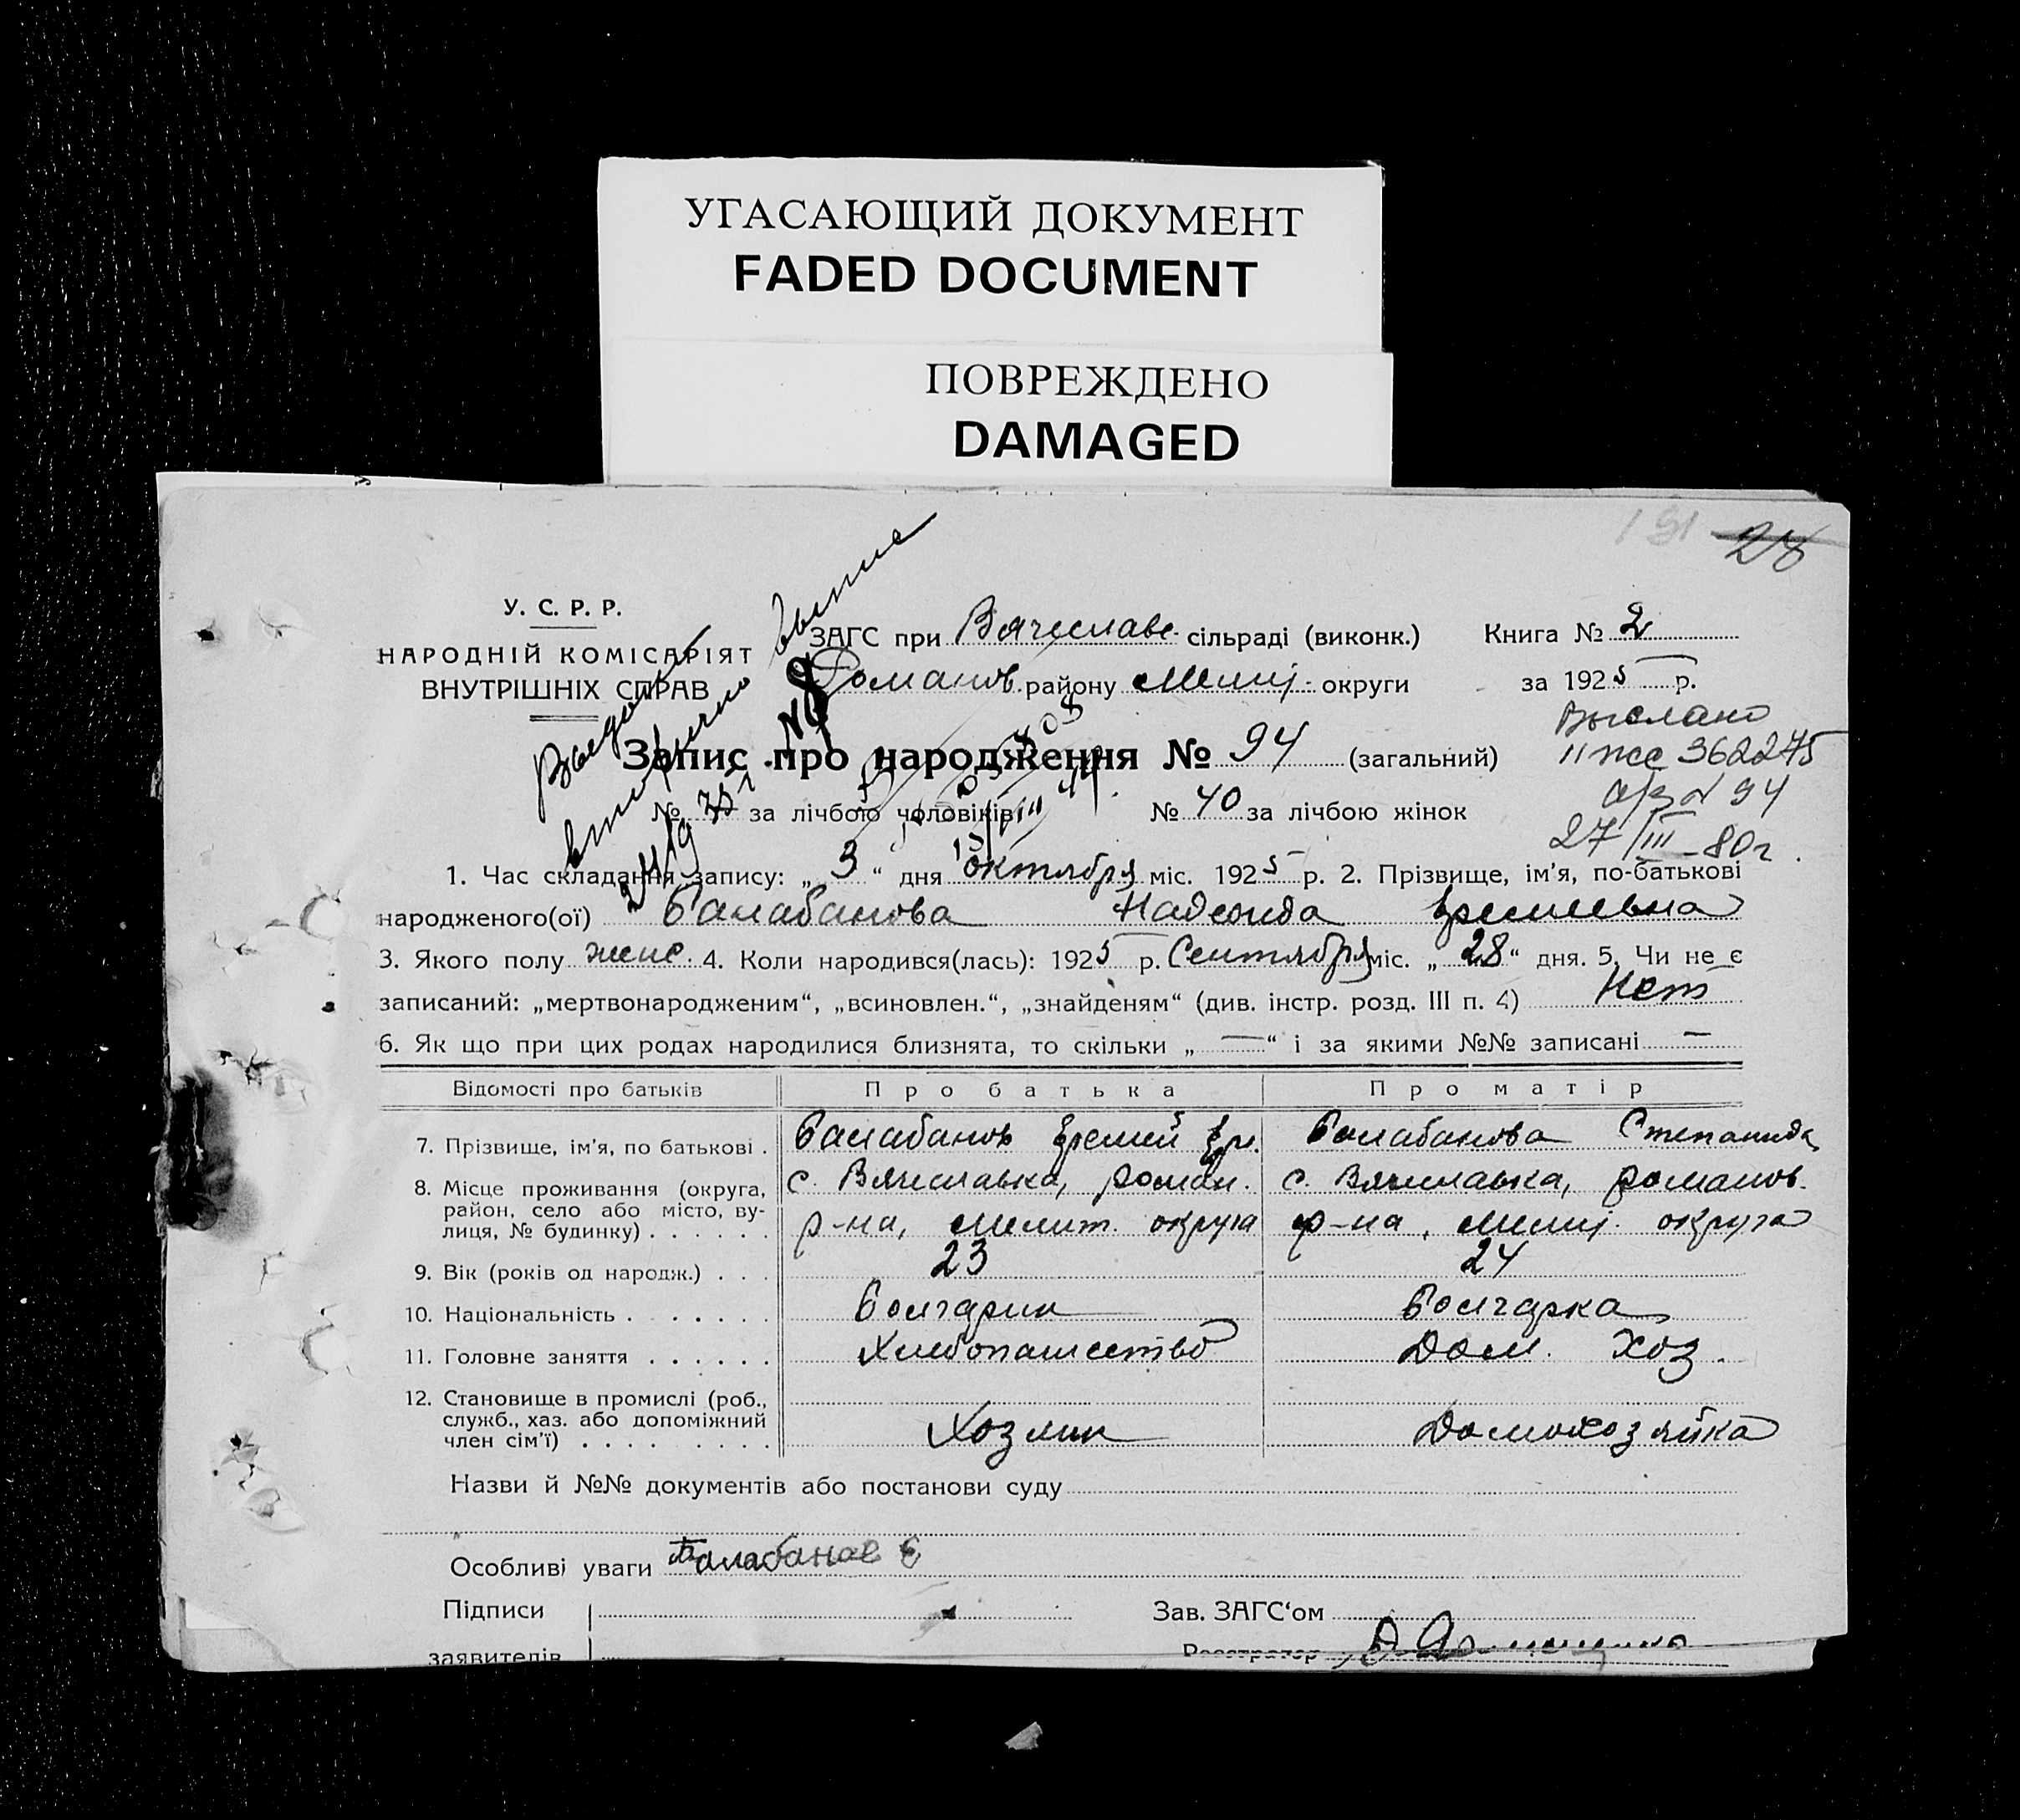 УГАСАЮЩИЙ ДОКУМЕНТ
FADED DOCUMENT
ПОВРЕЖДЕНО
DAMAGED
191 28
У. С. Р. Р.
НАРОДНІЙ КОМІСАРІЯТ
ВНУТРІШНІХ СПРАВ
ЗАГС при Вячеславс. сільраді (виконк.) Книга № 2
Романов. району Мелит. округи за 1925 р.
Выдано вторично
Выслано
II жс 362275
а/з № 94
27/III-80г.
Запис про народження № 94 (загальний)
№ за лічбою чоловіків № 40 за лічбою жінок
1. Час складання запису: „ 3 “ дня октября міс. 1925 р. 2. Прізвище, ім'я, по-батькові
народженого(ої) Балабанова Надежда Еремеевна
3. Якого полу женс. 4. Коли народився(лась): 1925 р. Сентября міс. „ 28 “ дня. 5. Чи не є
записаний: „мертвонародженим“, „всиновлен.“, „знайденям“ (див. інстр. розд. III п. 4) Нет
6. Як що при цих родах народилися близнята, то скільки „ — “ і за якими №№ записані —
Відомості про батьків Про батька Про матір
7. Прізвище, ім'я, по батькові . Балабанов Еремей Ер. Балабанова Степанида
8. Місце проживання (округа, с. Вячеславка, роман. с. Вячеславка, романов.
район, село або місто, ву-
лиця, № будинку) . . . . . . р-на, Мелит. округа р-на, Мелит. округа
9. Вік (років од народж.) . . . 23 24
10. Національність . . . . . . . Болгарин Болгарка
11. Головне заняття . . . . . . Хлебопашество Дом. Хоз.
12. Становище в промислі (роб.,
служб., хаз. або допоміжний
член сім'ї) . . . . . . . . . Хозяин Домохозяйка
Назви й №№ документів або постанови суду
Особливі уваги Балабанов Е
Підписи Зав. ЗАГС‘ом
заявителів Реєстратор